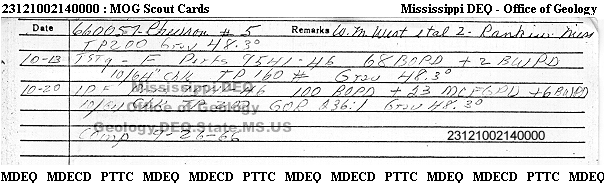 23121002140000 : MOG Scout Cards Mississippi DEQ - Office of Geology
Date 660057- # 5 Remarks W.M. West etal 2- Rankin Miss
TP200 Grav 48.3°
10-13 TSTg - F Perfs 9541-46 68 BOPD + 2 BWPD
10/64" Chk TP 160 # Grav 48.3°
10-20 IPF 100 BOPD + 23 MCFGPD + 6 BWPD
Mississippi DEQ
10/64 GOR 236:1 Grav 48.3°
Office of Geology
Geology.DEQ.State.MS.US
Comp 9-26-66 23121002140000
MDEQ MDECD PTTC MDEQ MDECD PTTC MDEQ MDECD PTTC MDEQ MDECD PTTC MDEQ